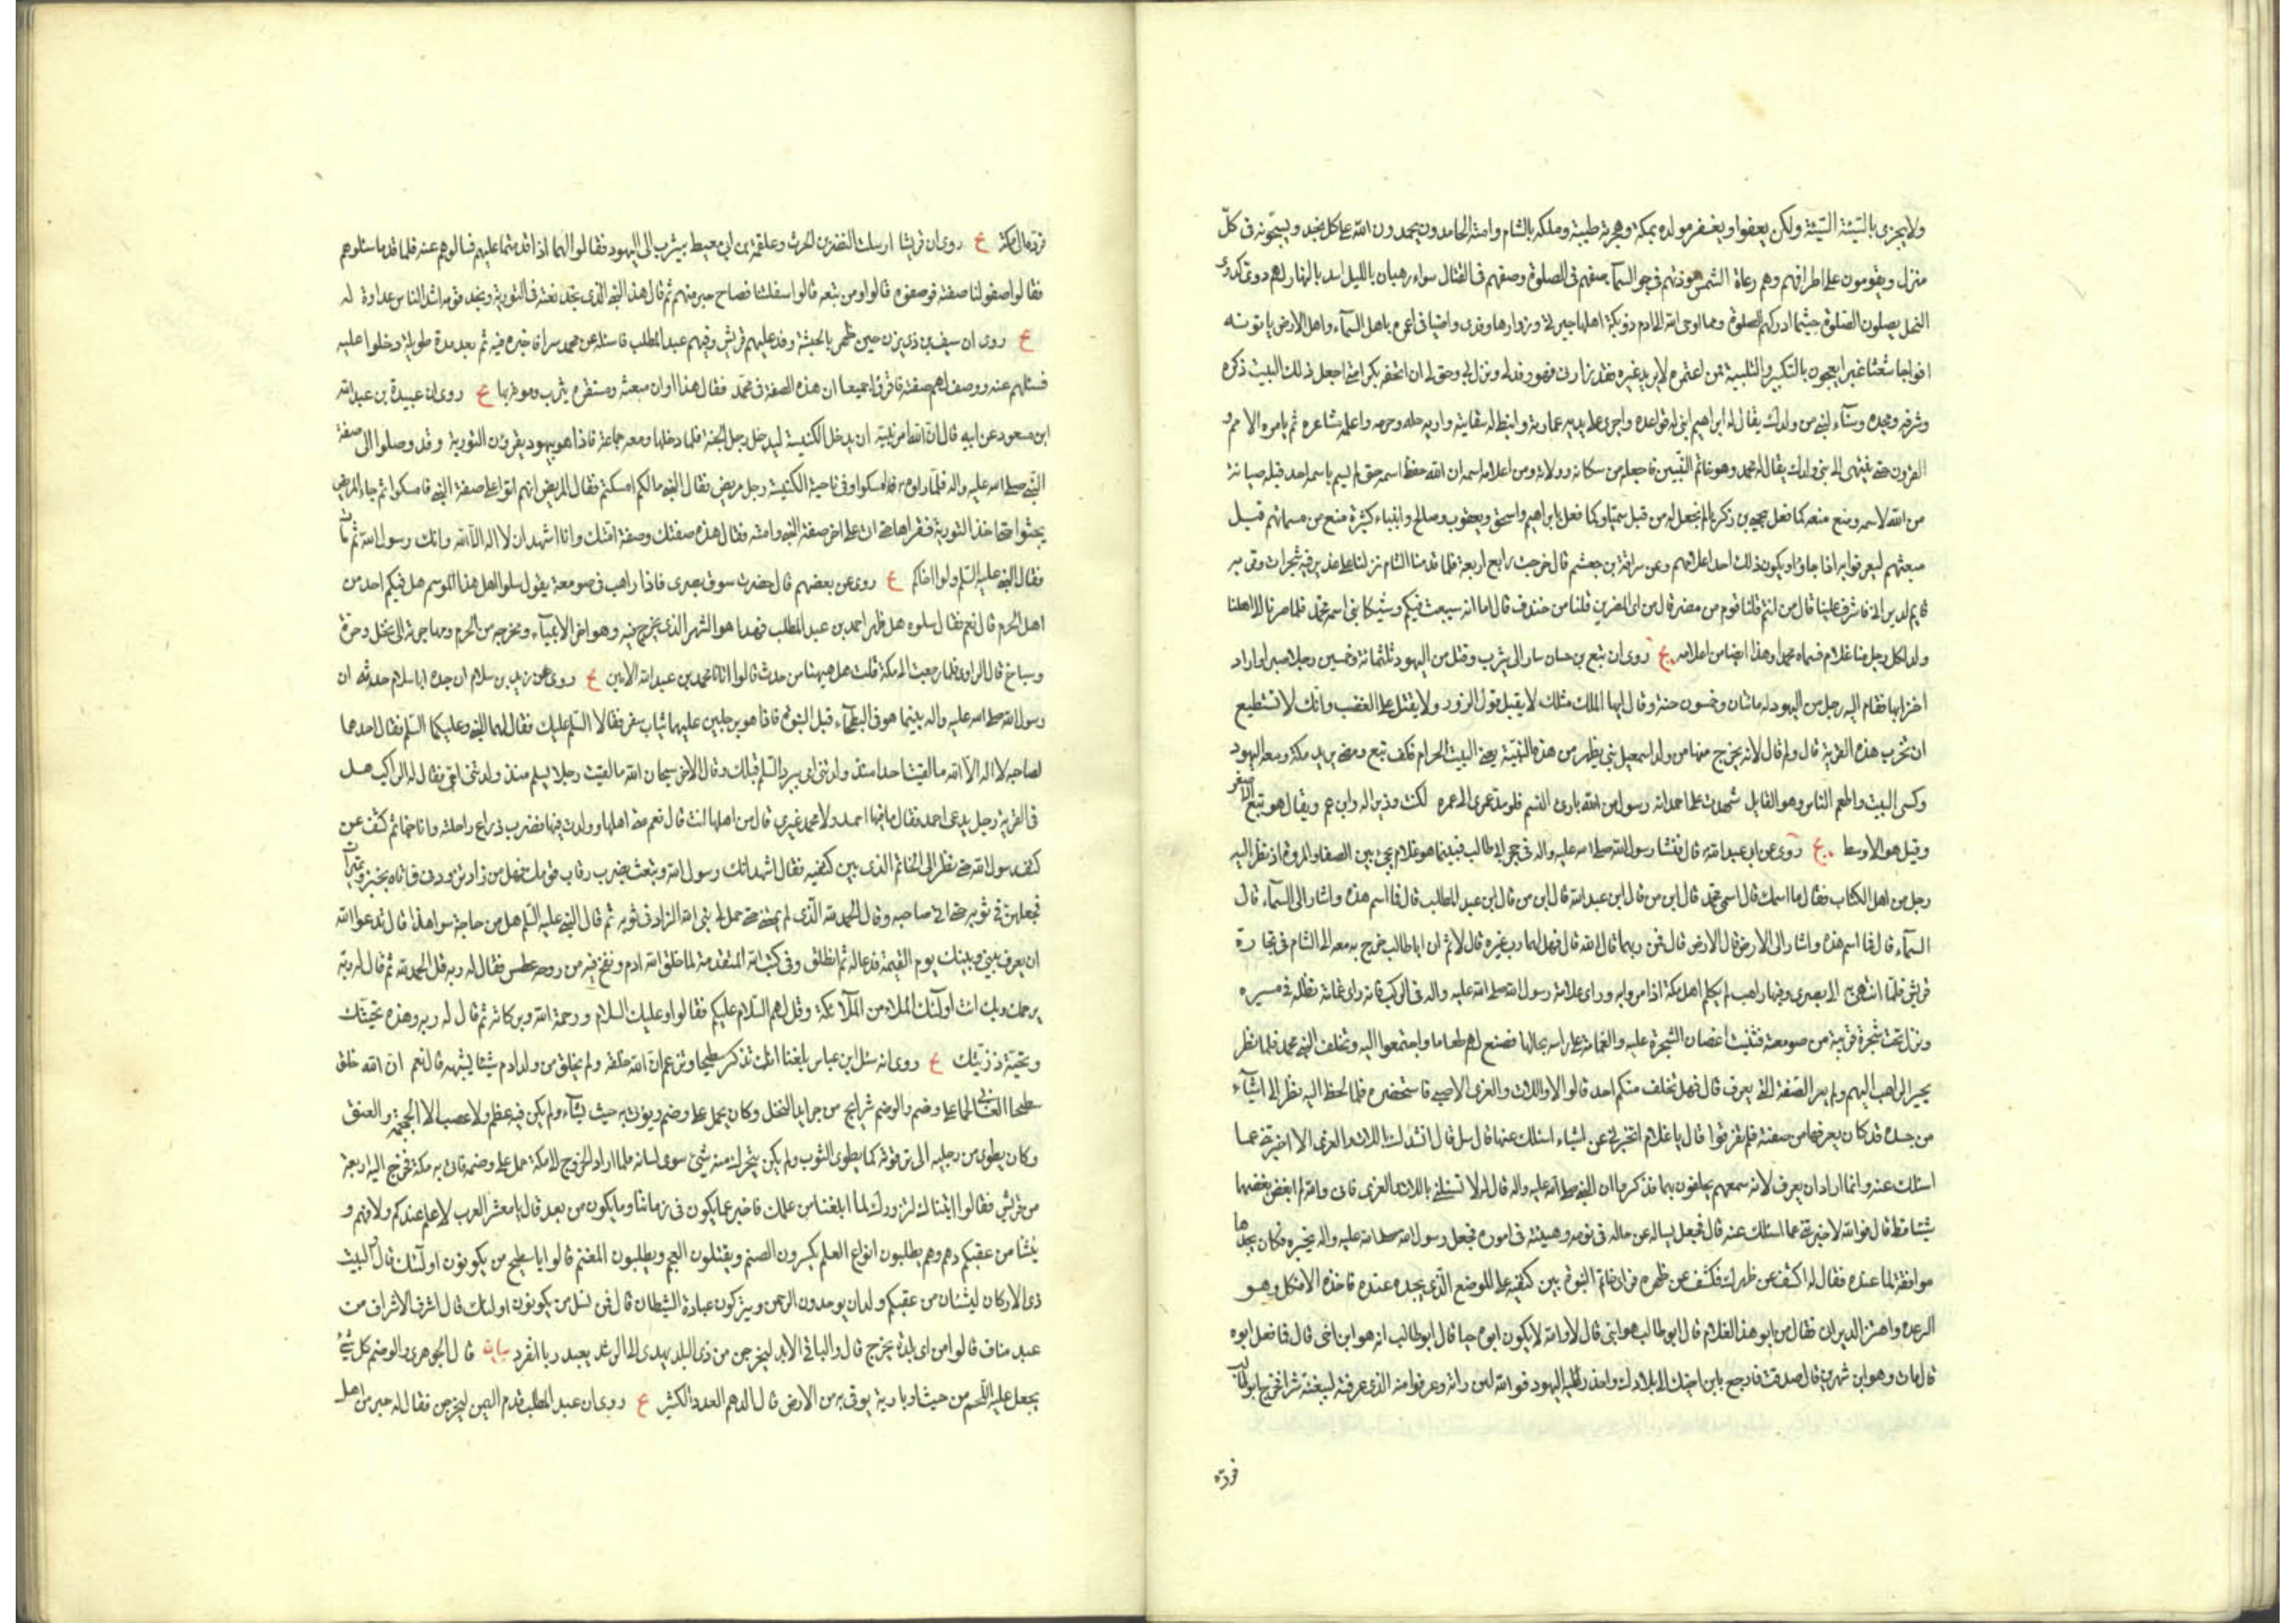 ولا يجزى بالسّيئة السّيئة ولكن يعفو او يغفر مولده بمكة وهجرته طيبة وملكه بالشام وامته الحامدون يحمدون الله على كل نجد ويسبّحونه فى كلّ
منزل ويقومون على اطرافهم وهم رعاة الشمس موذنهم فى جو السمآء صفهم فى الصلوة وصفهم فى القتال سواء رهبان بالليل اسد بالنهار لهم دوى كدوى
النحل يصلون الصّلوة حيثما ادركهم الصلوة ومما اوحى الله الى ادم ذو بكة اهلها جيرتى وزوارها وفدى واضيافى اعمره باهل السمآء واهل الارض ياتونه
افواجا شعثا غبرا يعجون بالتكبير والتلبية فمن اعتمره لا يريد غيره فقد زارنى وهو وفد لى ونزل بى وحق لى ان اتحفه بكرامتى اجعل ذلك البيت ذكره
وشرفه ومجده وسنآءه لنبى من ولدك يقال له ابراهيم ابنى له قواعده واجرى على يديه عمارته وانبط له سقايته واريه حله وحرمه واعلمه مشاعره ثم يعمره الامم و
القرون حتى ينتهى الى نبى من ولدك يقال له محمد وهو خاتم النبيين فاجعله من سكانه وولاته ومن اعلامه اسمه ان الله حفظ اسمه حتى لم يسم باسمه احد قبله صيانة
من الله لاسمه ومنع منه كما فعل بيحيى بن زكريا لم نجعل له من قبل سميا وكما فعل بابراهيم واسحق ويعقوب وصالح وانبياء كثيرة منع من مسماتهم قبل
مبعثهم ليعرفوا به اذا جاؤا ويكون ذلك احد اعلامهم وعن سراقة بن جعشم قال خرجت رابع اربعة فلما قدمنا الشام نزلنا على غدير فيه شجرات وقربه
قايم لديرانى فاشرف علينا قال من انتم قلنا قوم من مضر قال من اى المضرين قلنا من خندف قال اما انه سيبعث فيكم وشيكا نبى اسمه محمد فلما صرنا الى اهلنا
ولد لكل رجل منا غلام فسماه محمدا وهذا ايضا من اعلامه يج روى ان تبع بن حسان سار الى يثرب وقتل من اليهود ثلثمائة وخمسين رجلا صبرا واراد
اخرابها فقام اليه رجل من اليهود له مائتان وخمسون سنة وقال ايها الملك مثلك لا يقبل قول الزور ولا يقتل على الغضب وانك لا تستطيع
ان تخرب هذه القرية قال ولم قال لانه يخرج منها من ولد اسمعيل نبى يظهر من هذه البنية يعنى البيت الحرام فكف تبع ومضى يريد مكة ومعه اليهود
وكسى البيت واطعم الناس وهو القايل شهدت على احمد انه رسول من الله بارى النسم فلو مد عمرى الى عمره لكنت وزيرا له وابن عم ويقال هو تبع الاصغر
وقيل هو الاوسط يج روى عن ابى عبد الله قال نشا رسول الله صلى الله عليه واله فى حجر ابى طالب فبينما هو غلام يجئ بين الصفا والمروة اذ نظر اليه
رجل من اهل الكتاب فقال ما اسمك قال اسمى محمد قال ابن من قال ابن عبد الله قال ابن من قال ابن عبد المطلب قال فما اسم هذه واشار الى السمآء قال
السمآء قال فما اسم هذه واشار الى الارض قال الارض قال فمن ربهما قال الله قال فهل لهما رب غيره قال لا ثم ان ابا طالب خرج به معه الى الشام فى تجارة
قريش فلما انتهى به الى بصرى وفيها راهب لم يكلم اهل مكة اذا مروا به وراى علامة رسول الله صلى الله عليه واله فى الركب فانه راى غمامة تظله فى مسيره
ونزل تحت شجرة قريبة من صومعته فثنيت اغصان الشجرة عليه والغمامة على راسه بحالها فصنع لهم طعاما واجتمعوا اليه وتخلف النبى محمد فلما نظر
بحير الراهب اليهم ولم ير الصفة التى يعرف قال فهل تخلف منكم احد قالوا لا واللات والعزى الا صبى فاستحضره فلما لحظ اليه نظر الى اشيآء
من جسده قد كان يعرفها من صفته فلما تفرقوا قال يا غلام اتخبرنى عن اشياء اسئلك عنها قال سل قال انشدك باللات والعزى الا اخبرتنى عما
اسئلك عنه وانما اراد ان يعرف لانه سمعهم يحلفون بهما فذكروا ان النبى صلى الله عليه واله قال له لا تسئلنى باللات والعزى فانى والله لم ابغض بغضهما
شيئا قط قال فوالله لاخبرتنى عما اسئلك عنه قال فجعل يساله عن حاله فى نومه وهيئته فى اموره فجعل رسول الله صلى الله عليه واله يخبره فكان يجدها
موافقة لما عنده فقال له اكشف عن ظهرك فكشف عن ظهره فراى خاتم النبوة بين كتفيه على الموضع الذى يجده عنده فاخذه الافكل وهو
الرعدة واهتز الديرانى فقال من ابو هذا الغلام قال ابو طالب هو ابنى قال لا والله لا يكون ابوه حيا قال ابو طالب انه هو ابن اخى قال فما فعل ابوه
قال مات وهو ابن شهرين قال صدقت فارجع بابن اخيك الى بلادك واحذر عليه اليهود فوالله لئن راته وعرفوا منه الذى عرفته ليبغنه شرا فخرج ابو طالب
فرده
فرده الى مكة يج روى ان قريشا ارسلت النضر بن الحرث وعلقمة بن ابى معيط بيثرب الى اليهود فقالوا لهما اذا قدمتما عليهم فسالوهم عنه فلما قدما سئلوهم
فقالوا صفوا لنا صفته فوصفوه قالوا ومن تبعه قالوا سفلتنا فصاح حبر منهم ثم قال هذا النبى الذى نجد نعته فى التورية ونجد قومه اشد الناس عداوة له
يج روى ان سيف بن ذى يزن حين ظهر بالحبشة وفد عليهم قريش وفيهم عبد المطلب فاسئله عن محمد سرا فاخبره فيه ثم بعد مدة طويلة دخلوا عليه
فسئلهم عنه ووصف لهم صفته فاقروا جميعا ان هذه الصفة فى محمد فقال هذا اوان مبعثه ومستقره يثرب وموته بها يج روى ان عبيدة بن عبد الله
ابن مسعود عن ابيه قال ان الله امر نبيه ان يدخل الكنيسة ليدخل رجل الجنة فلما دخلها ومعه جماعة فاذا هو بيهود يقرؤن التورية وقد وصلوا الى صفة
النبى صلى الله عليه واله فلما راوه امسكوا وفى ناحية الكنيسة رجل مريض فقال النبى ما لكم امسكتم فقال المريض انهم اتوا على صفة النبى فامسكوا ثم جاء المريض
يجثوا حتى اخذ التورية فقراها حتى اتى على اخر صفة النبى وامته فقال هذه صفتك وصفة امتك وانا اشهد ان لا اله الا الله وانك رسول الله ثم مات
فقال النبى عليه السلم ولوا اخاكم يج روى عن بعضهم قال حضرت سوق بصرى فاذا راهب فى صومعة يقول سلوا اهل هذا الموسم هل فيكم احد من
اهل الحرم قال نعم فقال سلوه هل ظهر احمد بن عبد المطلب فهذا هو الشهر الذى يخرج فيه وهو اخر الانبياء ومخرجه من الحرم ومهاجرته الى نخل وحرة
وسباخ قال الراوى فلما رجعت الى مكة قلت هل هيهنا من حدث قالوا اتانا محمد بن عبد الله الامين يج روى عن زيد بن سلام ان جده ابا سلام حدثه ان
رسول الله صلى الله عليه واله بينما هو فى البطحآء قبل النبوة فاذا هو برجلين عليهما ثياب سفر فقالا السلم عليك فقال لهما النبى وعليكما السلم فقال احدهما
لصاحبه لا اله الا الله ما لقيت احدا منذ ولدتنى امى يرد السلم قبلك وقال الاخر سبحان الله ما لقيت رجلا يسلم منذ ولدتنى امى فقال له الراكب هل
فى القرية رجل يدعى احمد فقال ما فيها احمد ولا محمد غيرى قال من اهلها انت قال نعم من اهلها وولدت فيها فضرب ذراع راحلته واناخها ثم كشف عن
كتف رسول الله حتى نظر الى الخاتم الذى بين كتفيه فقال اشهد انك رسول الله وتبعث بضرب رقاب قومك فهل من زاد تزودنى فاتاه بخبز وتميرات
فجعلهن فى ثوبه حتى اتى صاحبه وقال الحمد لله الذى لم يمتنى حتى حمل لى نبى الله الزاد فى ثوبه ثم قال النبى عليه السلم هل من حاجة سوا هذا قال تدعوا الله
ان يعرف بينى وبينك يوم القيمة فدعا له ثم انطلق وفى كتب الله المتقدمة لما خلق الله ادم ونفخ فيه من روحه عطس فقال له ربه قل الحمد لله ثم قال له ربه
يرحمك ربك ائت اولئك الملاء من الملآئكة وقل لهم السلام عليكم فقالوا وعليك السلام ورحمة الله وبركاته ثم قال له ربه وهذه تحيتك
وتحية ذريتك يج روى انه سئل ابن عباس بلغنا انك تذكر سطيحا وتزعم ان الله خلقه ولم يخلق من ولد ادم شيئا يشبهه قال نعم ان الله خلق
سطيحا الغسانى لحما على وضم والوضم شرايج من جرايد النخل وكان يحمل على وضم ويؤتى به حيث يشآء ولم يكن فيه عظم ولا عصب الا الجمجمة والعنق
وكان يطوى من رجليه الى ترقوته كما يطوى الثوب ولم يكن يتحرك منه شئ سوى لسانه فلما اراد الخروج الى مكة حمل على وضمه فاتى به مكة فخرج اليه اربعة
من قريش فقالوا اتيناك لنزورك لما ابلغنا من علمك فاخبر عما يكون فى زماننا وما يكون من بعد قال يا معشر العرب لا علم عندكم ولا فهم و
ينشا من عقبكم دهم وهم يطلبون انواع العلم يكسرون الصنم ويقتلون العجم ويطلبون المغنم قالوا يا سطيح من يكونون اولئك قال والبيت
ذى الاركان لينشان من عقبكم ولدان يوحدون الرحمن ويتركون عبادة الشيطان قال فمن نسل من يكونون اولئك قال اشرف الاشراف من
عبد مناف قالوا من اى بلدة يخرج قال والباقى الابد ليخرجن من ذى البلد يهدى الى الرشد يعبد ربا انفرد بيان قال الجوهرى والوضم كل شئ
يجعل عليه اللحم من خشب او بارية يوقى به من الارض قال الدهم العدد الكثير يج روى ان عبد المطلب قدم اليمن ليخرجن فقال له حبر من اهل